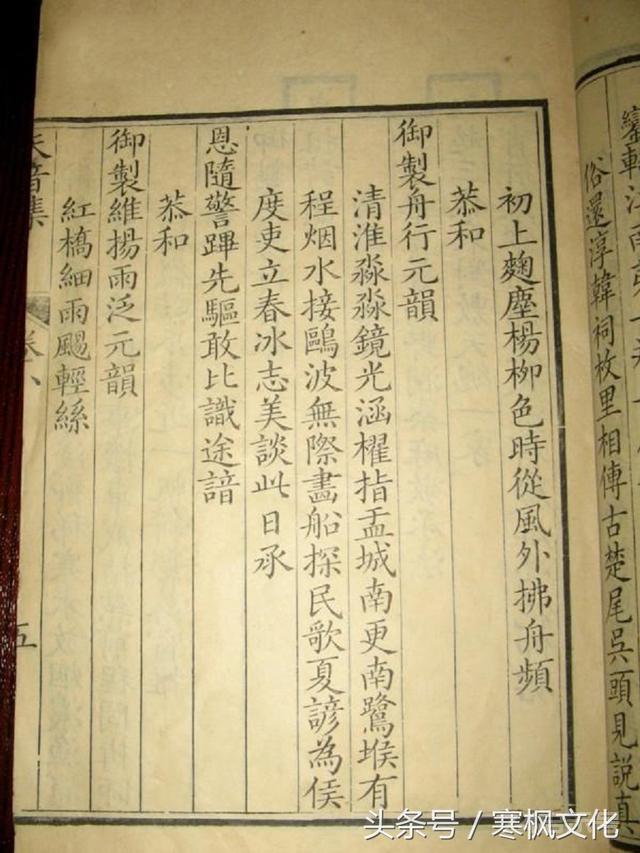 俗還淳韓祠枚里相傳古楚尾吳頭見說真
初上麴塵楊柳色時從風外拂舟頻
恭和
御製舟行元韻
清淮淼淼鏡光涵櫂指盂城南更南鷺堠有
程烟水接鷗波無際畵船探民歌夏諺為侯
度吏立春冰志美談此日承
恩隨警蹕先驅敢比識途諳
恭和
御製維揚雨泛元韻
紅橋細雨颺輕絲
音集
卷八
五
头条号／寒枫文化